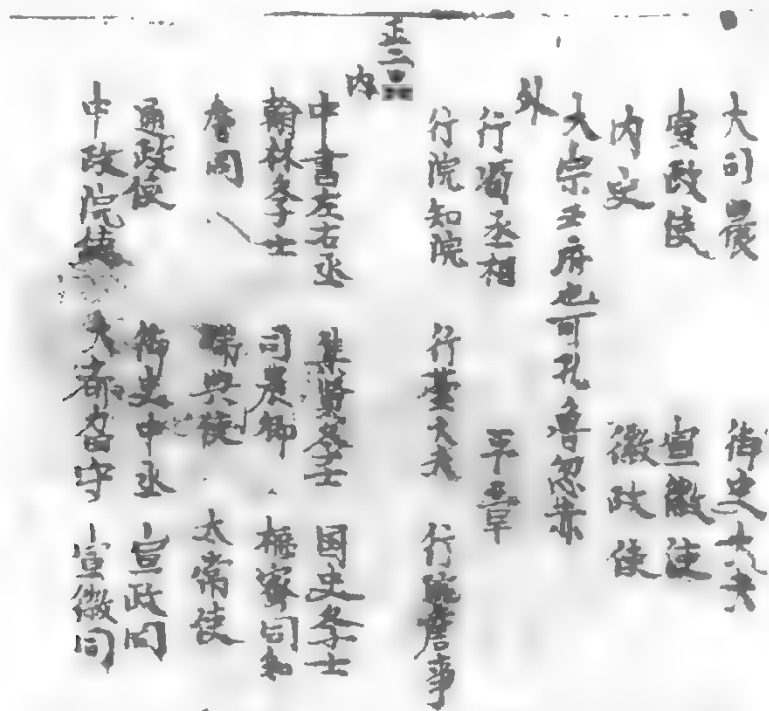 大司農 御史大夫
宣政使 宣徽使
内史 徽政使
大宗王府也可孔魯忽赤
外
行省丞相 平章
行院知院 行臺大夫 行院詹事
正二品
内
中書左右丞 集賢学士 国史学士
翰林学士 司農卿 樞密同知
詹同 瑞典使 太常使
通政使 御史中丞 宣政同
中政院使 大都留守 宣徽同